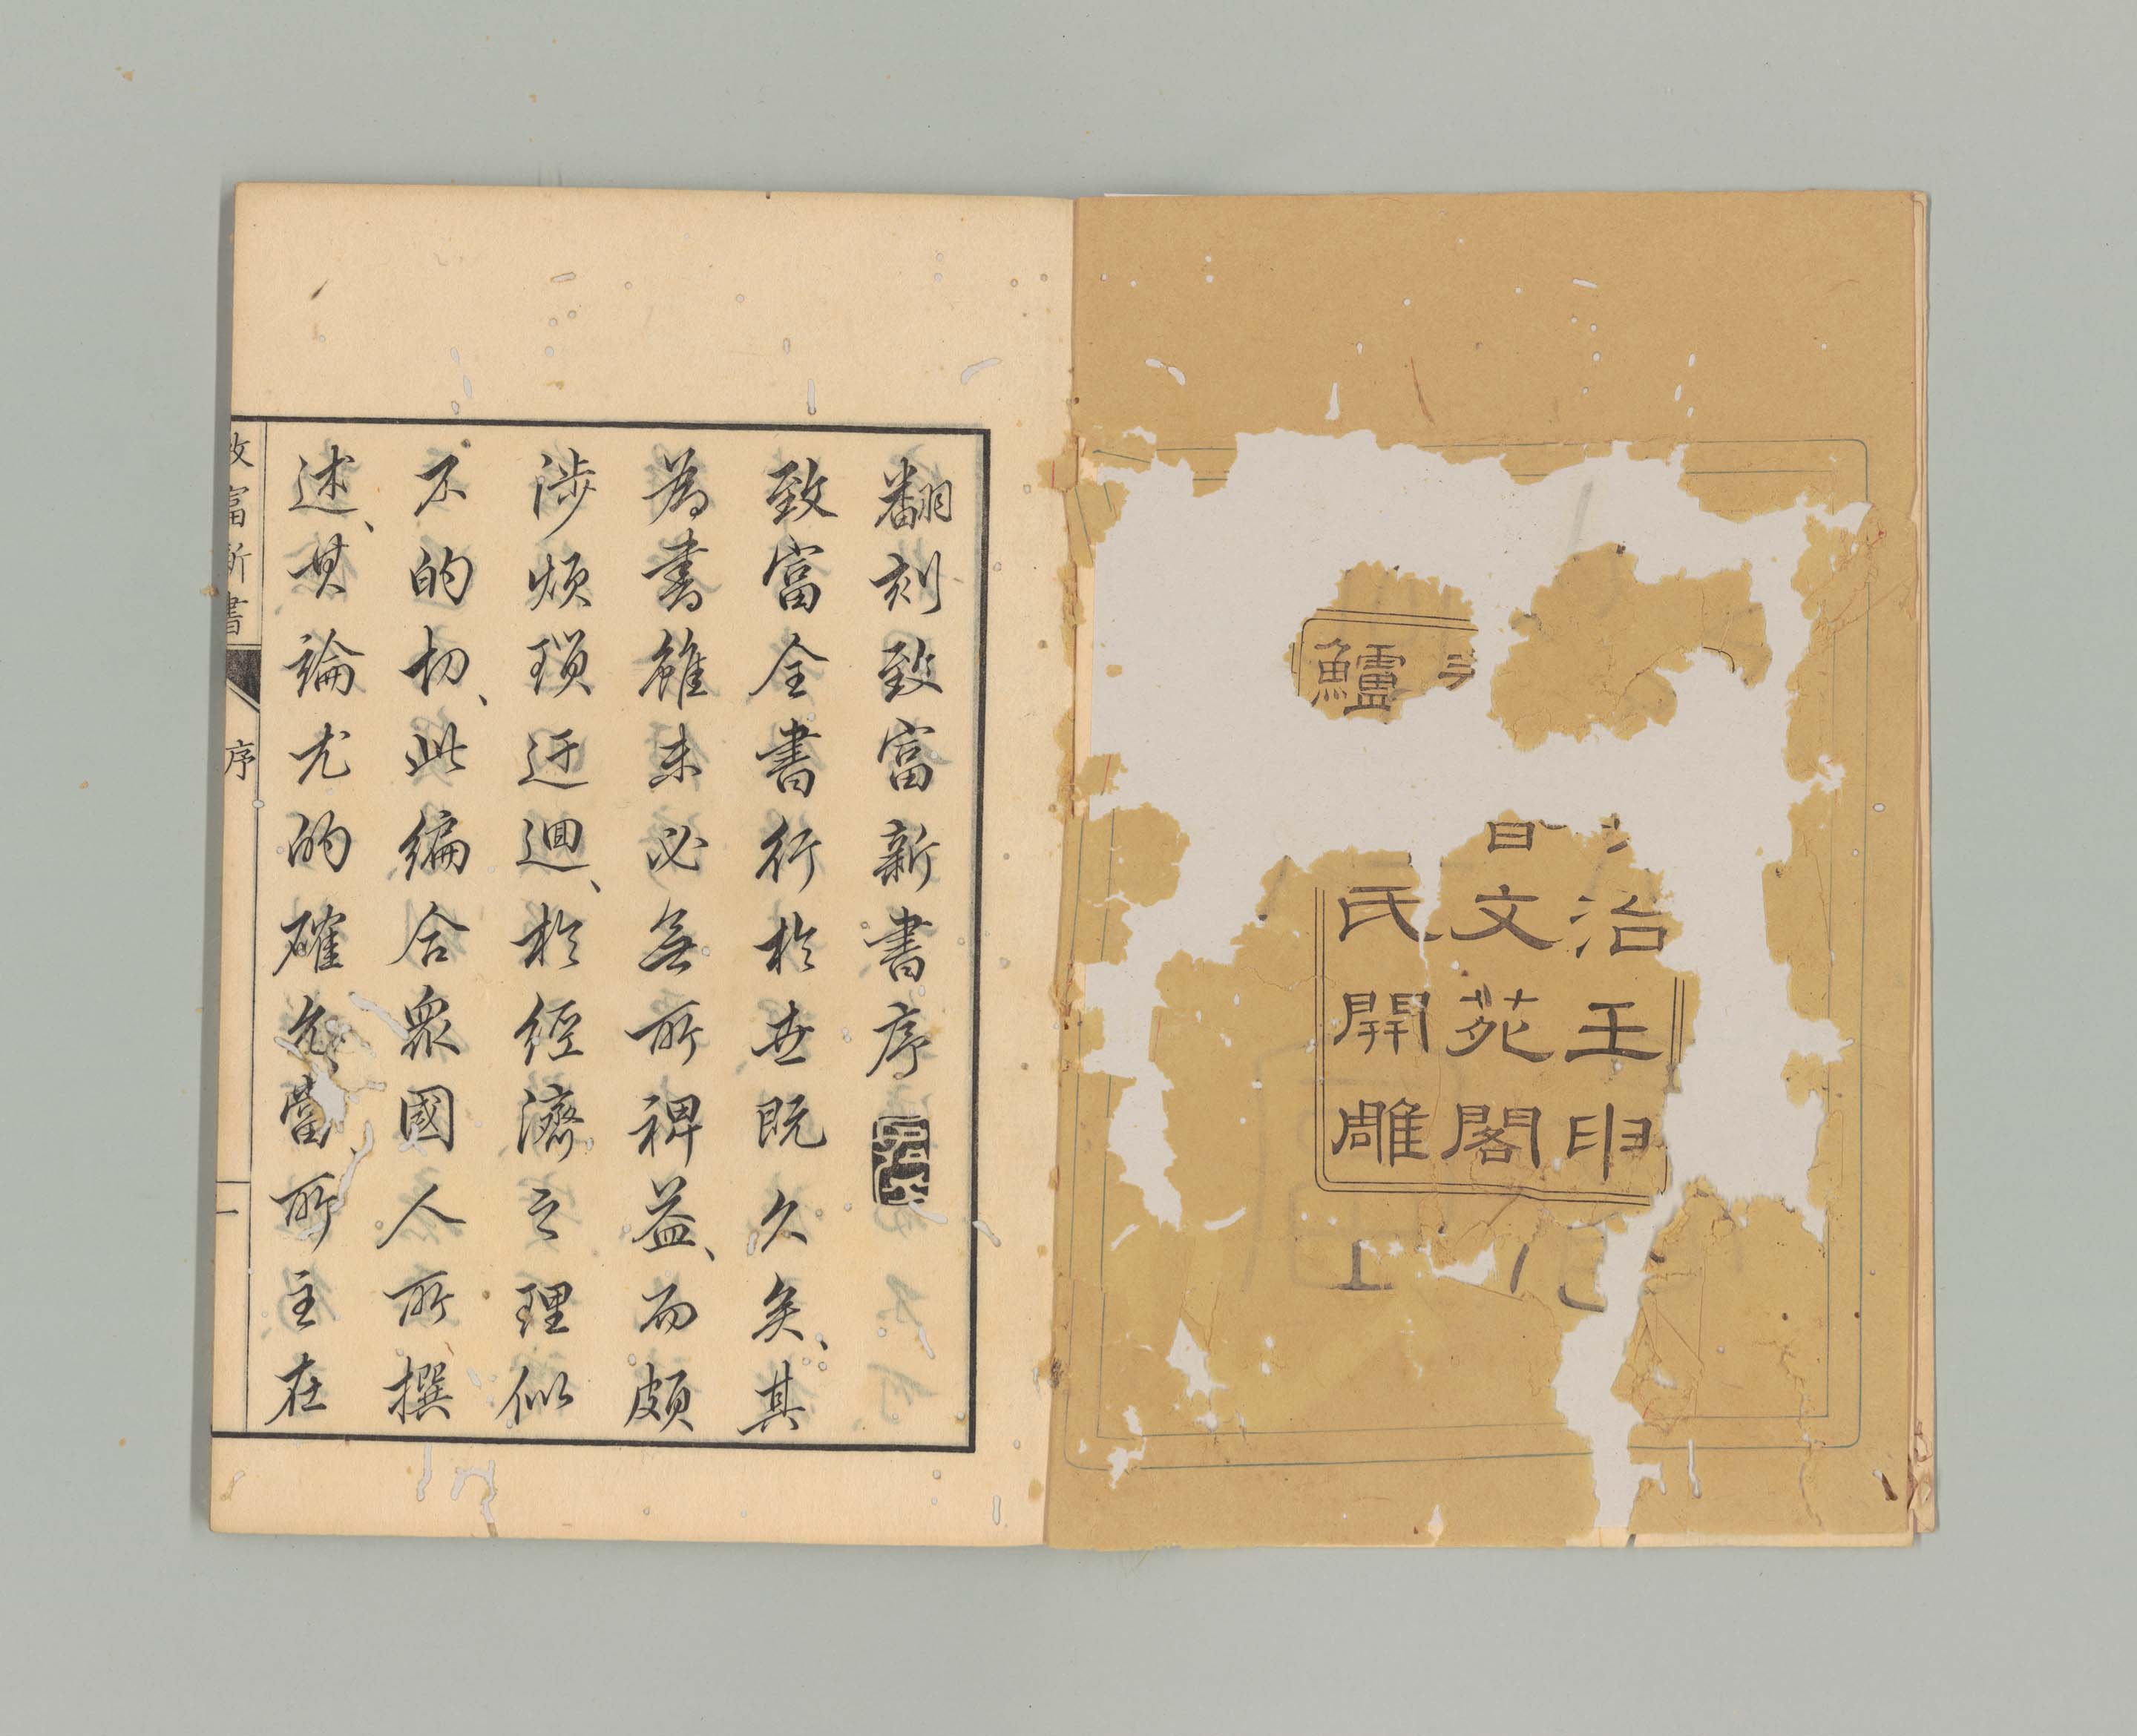 治壬申
文苑閣
鱸
氏開雕
翻刻致富新書序
致富全書行於世既久矣、其
為書雖未必無所裨益、而頗
涉煩瑣迂迴、於經濟之理似
不的切、此編合衆國人所撰
述、其論尤的確允當所主在
致富新書
序
一